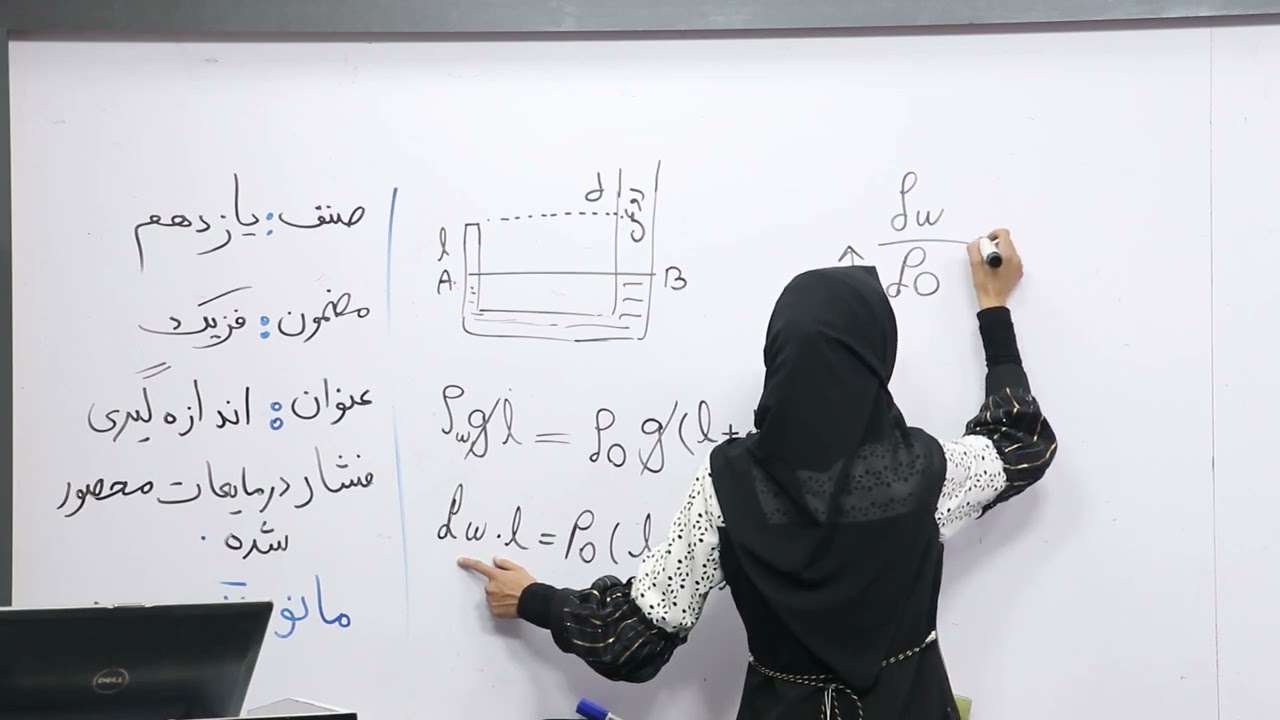 صنف: یازدهم
مضمون: فزیک
عنوان: اندازه گیری
فشار در مایعات محصور
شده.
d
l
A
B
ρw g l = ρo g (l +
ρw . l = ρo ( l
ρw
ρo
DELL